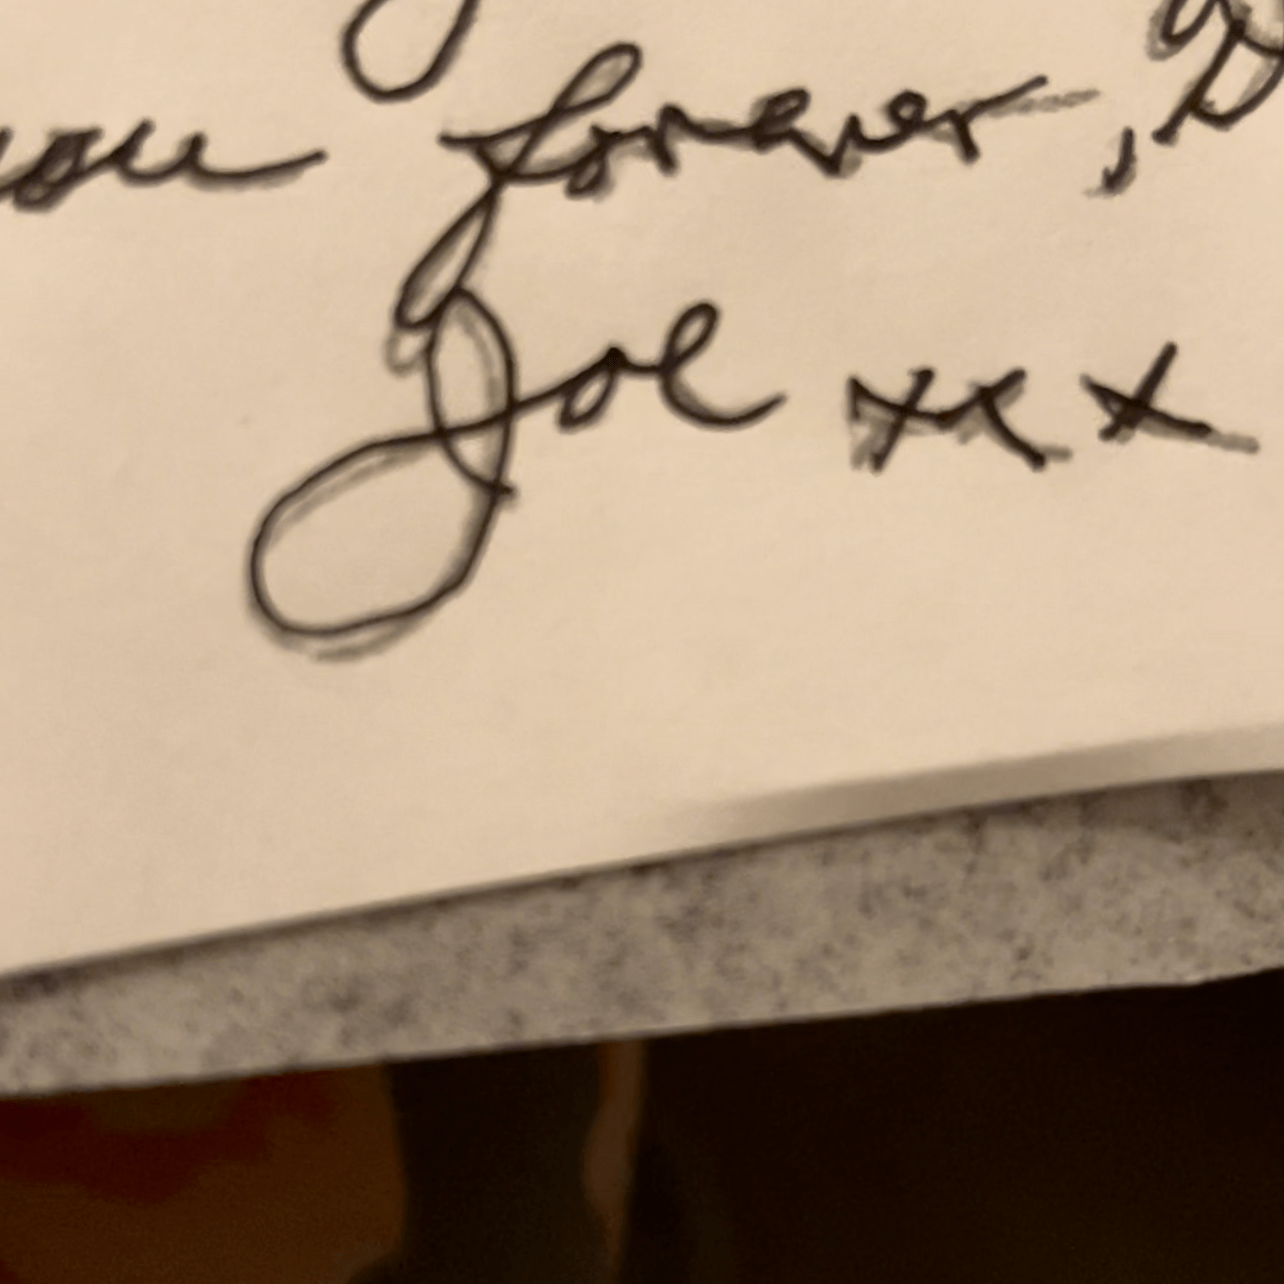 you forever,
Joe xxx